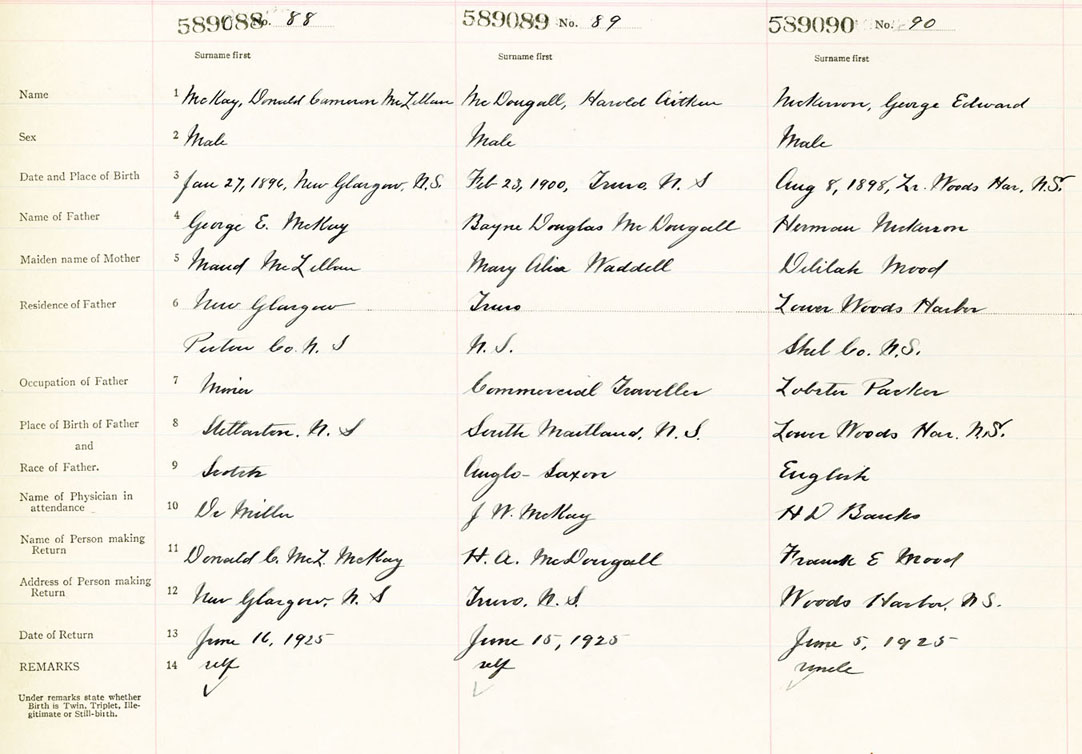 589088 No. 88 589089 No. 89 589090 No. 90
Surname first Surname first Surname first
Name 1 McKay, Donald Cameron McLellan McDougall, Harold Aitken Nickerson, George Edward
Sex 2 Male Male Male
Date and Place of Birth 3 Jan 27, 1896, New Glasgow, N.S. Feb 23, 1900, Truro, N. S Aug 8, 1898, Lr. Woods Har, N.S.
Name of Father 4 George E. McKay Bayne Douglas McDougall Herman Nickerson
Maiden name of Mother 5 Maud McLellan Mary Alice Waddell Delilah Mood
Residence of Father 6 New Glasgow Truro Lower Woods Harbor
Pictou Co. N. S N. S. Shel Co. N.S.
Occupation of Father 7 Miner Commercial Traveller Lobster Packer
Place of Birth of Father 8 Stellarton, N. S South Maitland, N. S. Lower Woods Har. N.S.
and
Race of Father. 9 Scotch Anglo-Saxon English
Name of Physician in
attendance 10 Dr Miller J W. McKay H D Banks
Name of Person making
Return 11 Donald C. McL McKay H. A. McDougall Frank E Mood
Address of Person making
Return 12 New Glasgow, N. S Truro, N. S. Woods Harbor, N.S.
Date of Return 13 June 16, 1925 June 15, 1925 June 5, 1925
REMARKS 14 self self uncle
Under remarks state whether
Birth is Twin, Triplet, Ille-
gitimate or Still-birth.